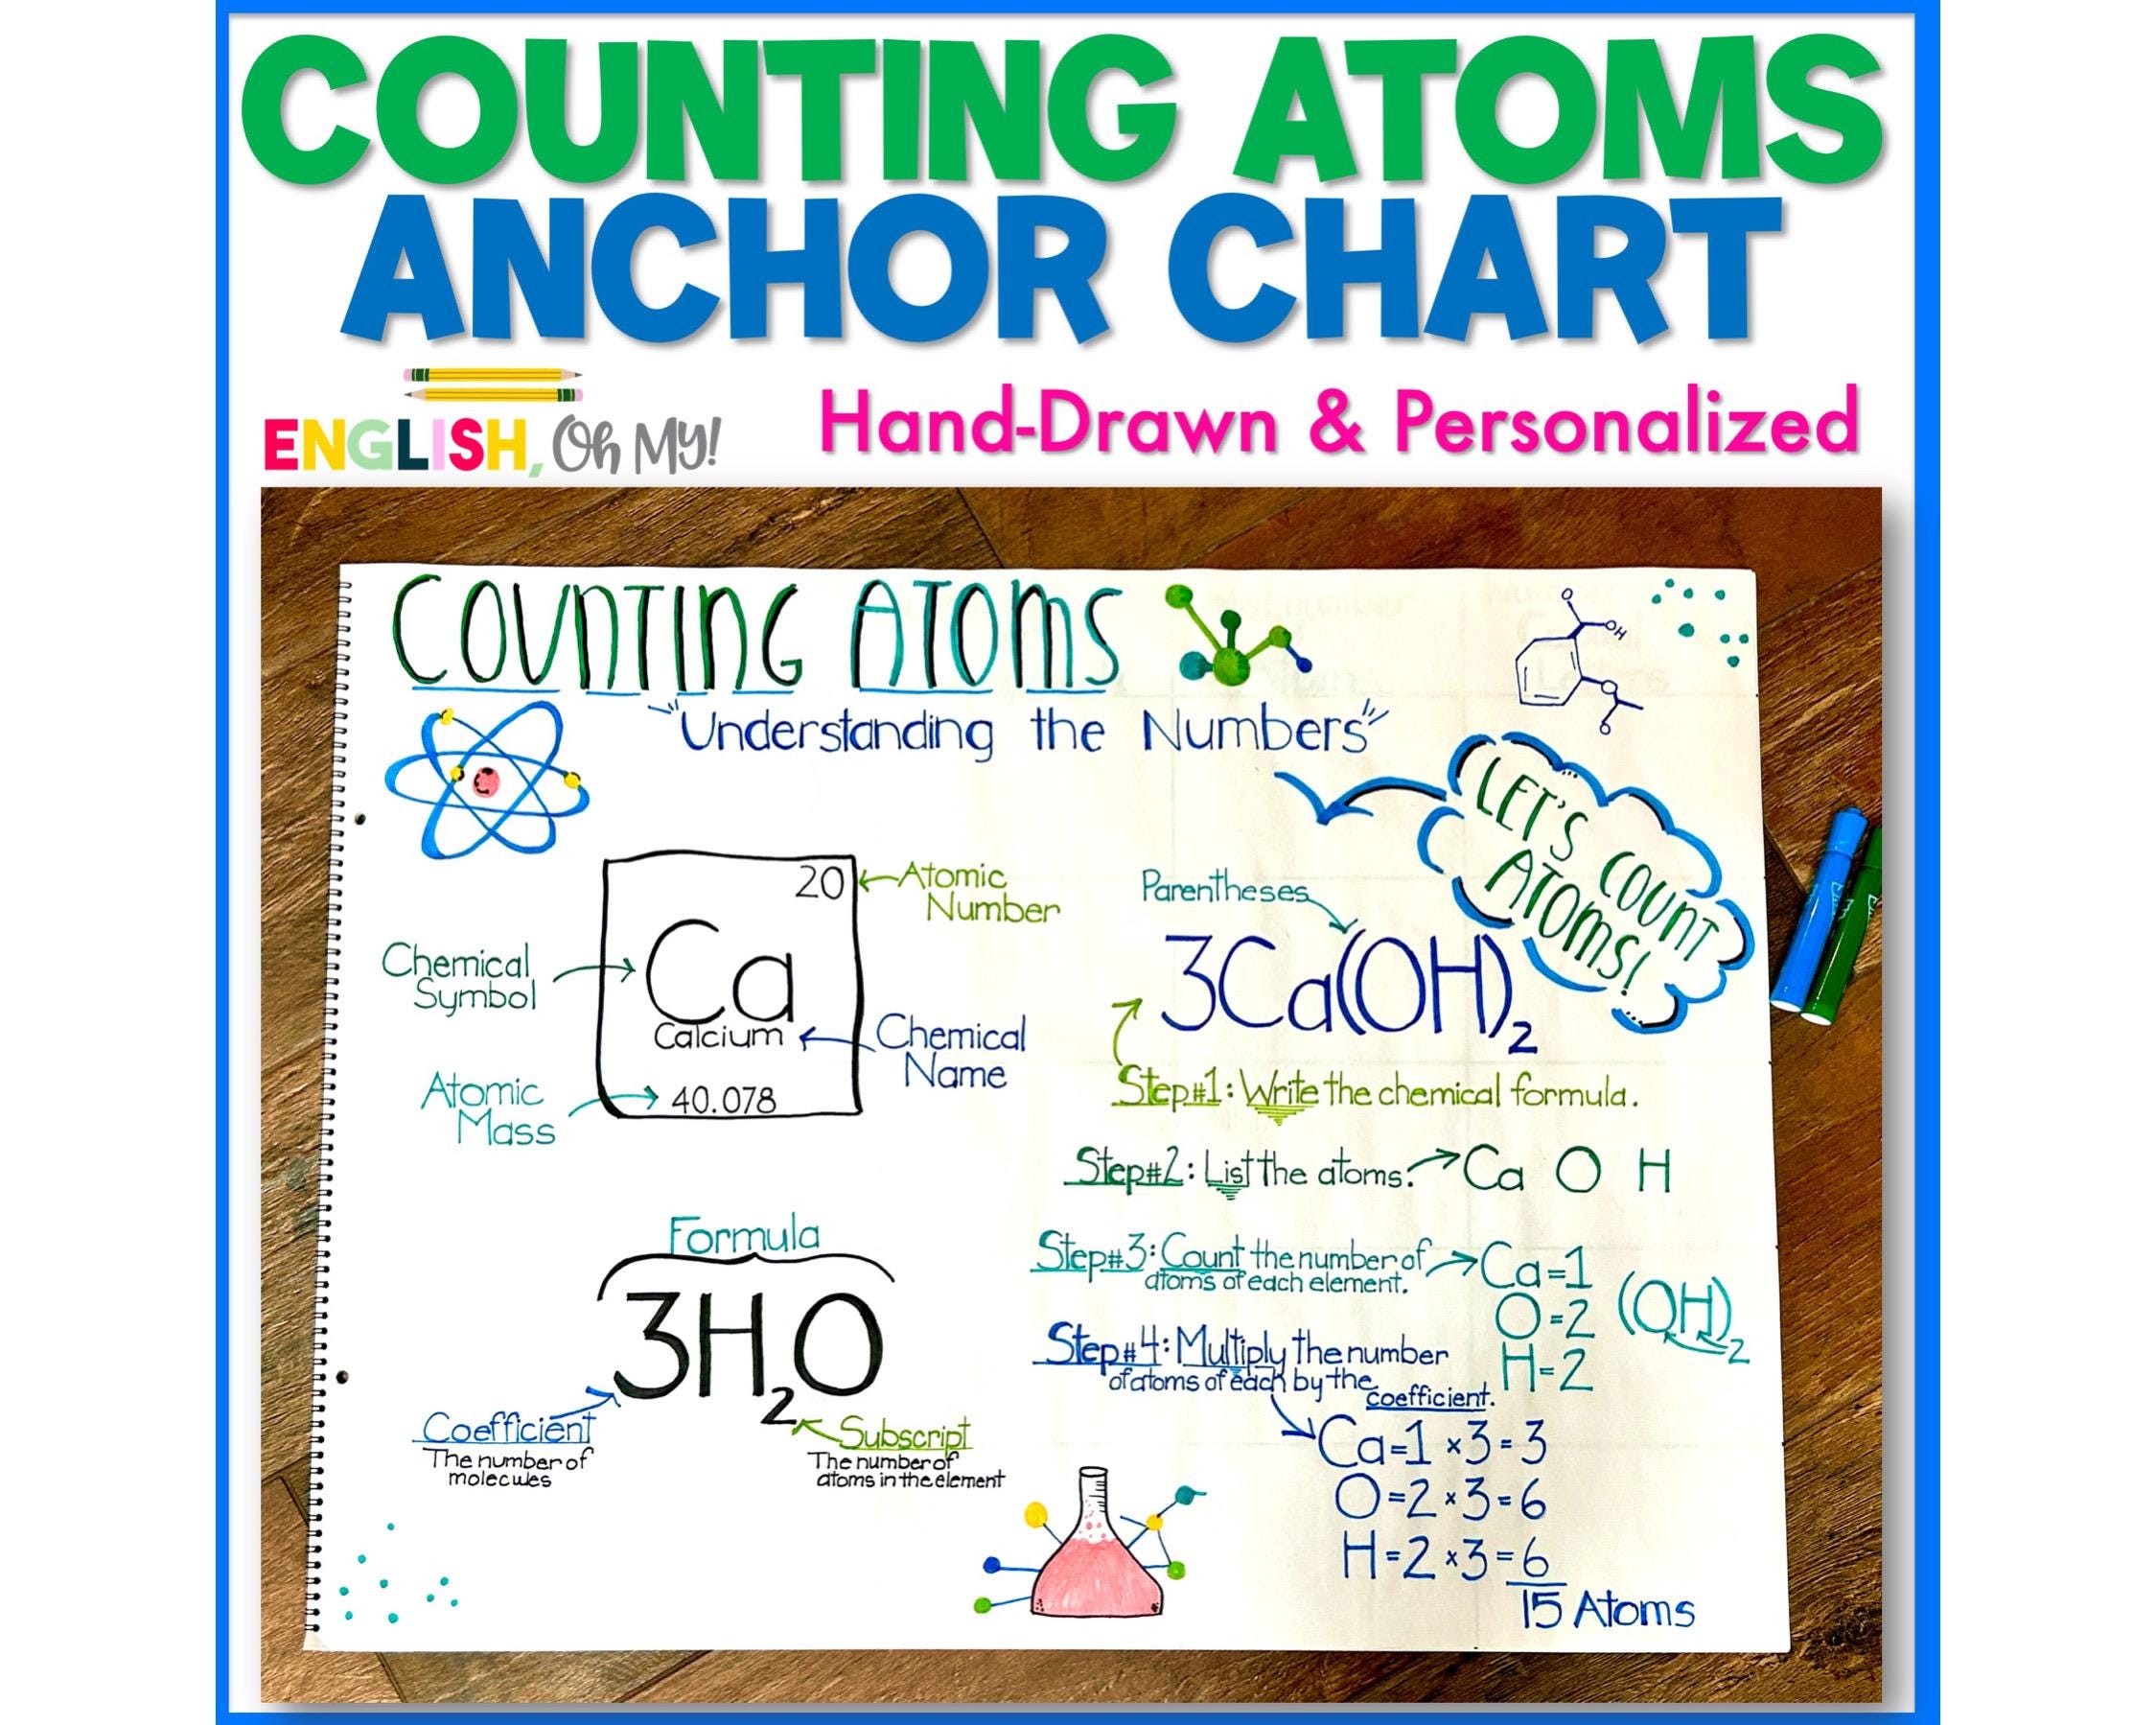 COUNTING ATOMS
ANCHOR CHART
ENGLISH, Oh My!
Hand-Drawn & Personalized
COUNTING ATOMS
"Understanding the Numbers"
LET'S COUNT
ATOMS!
20
Atomic
Number
Chemical
Symbol
Ca
Calcium
Chemical
Name
Atomic
Mass
40.078
Formula
3H₂O
Coefficient
The number of
molecules
Subscript
The number of
atoms in the element
Parentheses
3Ca(OH)₂
Step#1: Write the chemical formula.
Step#2: List the atoms. Ca O H
Step#3: Count the number of
atoms of each element.
Ca=1
O=2
H=2
(OH)₂
Step#4: Multiply the number
of atoms of each by the
coefficient.
Ca=1 x3=3
O=2 x3=6
H=2 x3=6
15 Atoms
O
OH
O
O